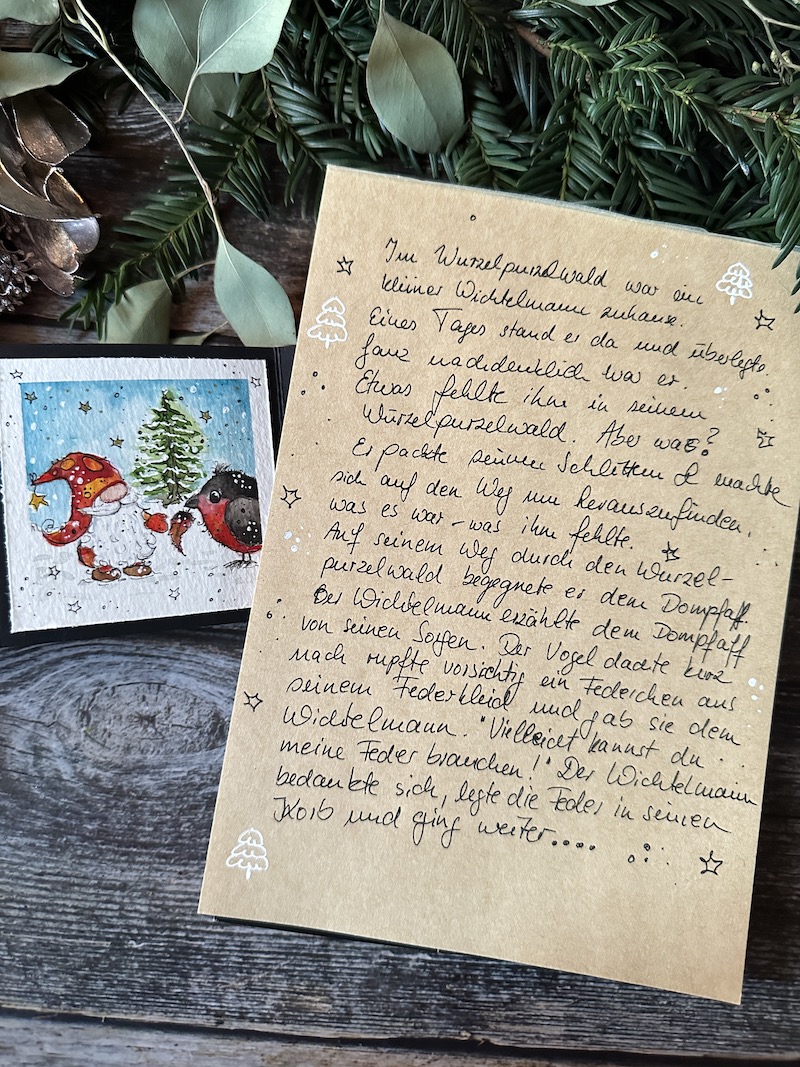 Im Wurzelpurzelwald war ein
kleiner Wichtelmann zuhause.
Eines Tages stand er da und überlegte.
Ganz nachdenklich war er.
Etwas fehlte ihm in seinem
Wurzelpurzelwald. Aber was?
Er packte seinen Schlitten & machte
sich auf den Weg um herauszufinden,
was es war - was ihm fehlte.
Auf seinem Weg durch den Wurzel-
purzelwald begegnete er dem Dompfaff.
Der Wichtelmann erzählte dem Dompfaff
von seinen Sorgen. Der Vogel dachte kurz
nach rupfte vorsichtig ein Federchen aus
seinem Federkleid und gab sie dem
Wichtelmann. "Vielleicht kannst du
meine Feder brauchen!" Der Wichtelmann
bedankte sich, legte die Feder in seinen
Korb und ging weiter....